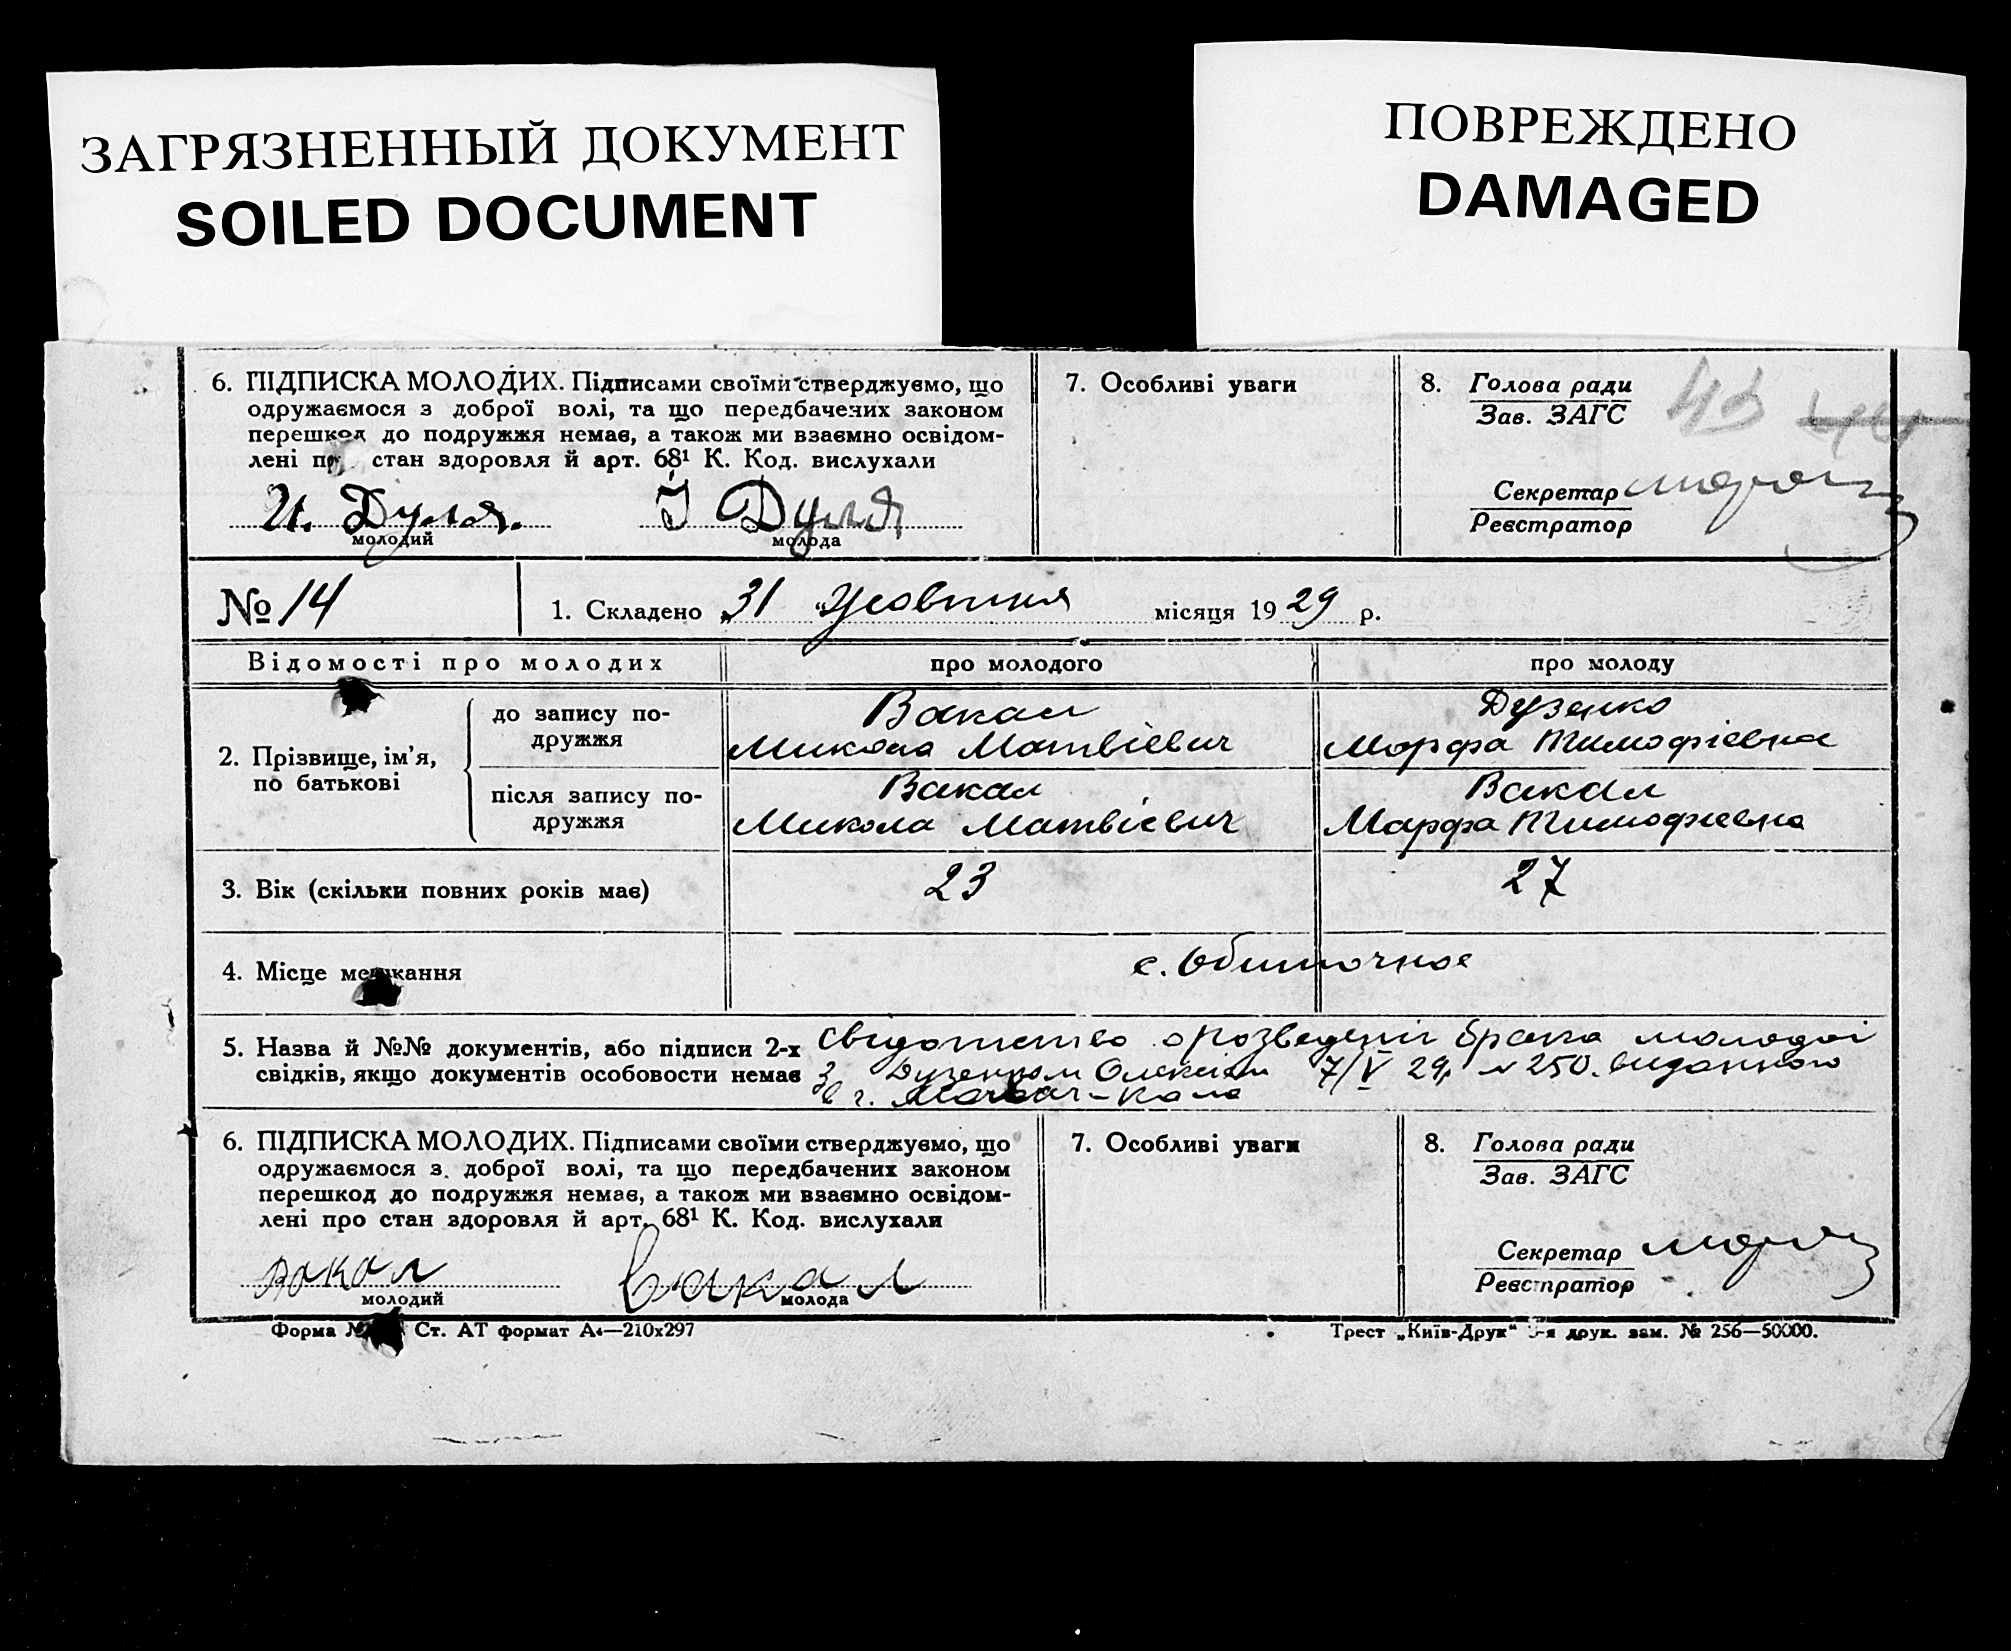 ЗАГРЯЗНЕННЫЙ ДОКУМЕНТ
SOILED DOCUMENT
ПОВРЕЖДЕНО
DAMAGED
6. ПІДПИСКА МОЛОДИХ. Підписами своїми стверджуємо, що
одружаємося з доброї волі, та що передбачених законом
перешкод до подружжя немає, а також ми взаємно освідом-
лені пр стан здоровля й арт. 68¹ К. Код. вислухали
И. Дуля.
молодий
І Дуля
молода
7. Особливі уваги
8. Голова ради
Зав. ЗАГС
43
Секретар
Реєстратор
№ 14
1. Складено „31“ Жовтня місяця 1929 р.
Відомості про молодих
про молодого
про молоду
2. Прізвище, ім'я,
по батькові
до запису по-
дружжя
Вакал
Микола Матвієвич
Дузенко
Марфа Тимофієвна
після запису по-
дружжя
Вакал
Микола Матвієвич
Вакал
Марфа Тимофиевна
3. Вік (скільки повних років має)
23
27
4. Місце мешкання
с. Обиточное
5. Назва й №№ документів, або підписи 2-х
свідків, якщо документів особовости немає
Свідотство о розведенії брака молодої
з Дузенком Олексієм 7/V 29р №250. виданного
6. ПІДПИСКА МОЛОДИХ. Підписами своїми стверджуємо, що
одружаємося з доброї волі, та що передбачених законом
перешкод до подружжя немає, а також ми взаємно освідом-
лені про стан здоровля й арт. 68¹ К. Код. вислухали
Вакал
молодий
Вакал
молода
7. Особливі уваги
8. Голова ради
Зав. ЗАГС
Секретар
Реєстратор
Форма № Ст. АТ формат А₄—210х297
Трест „Київ-Друк“ 3-я друк. зам. № 256—50000.